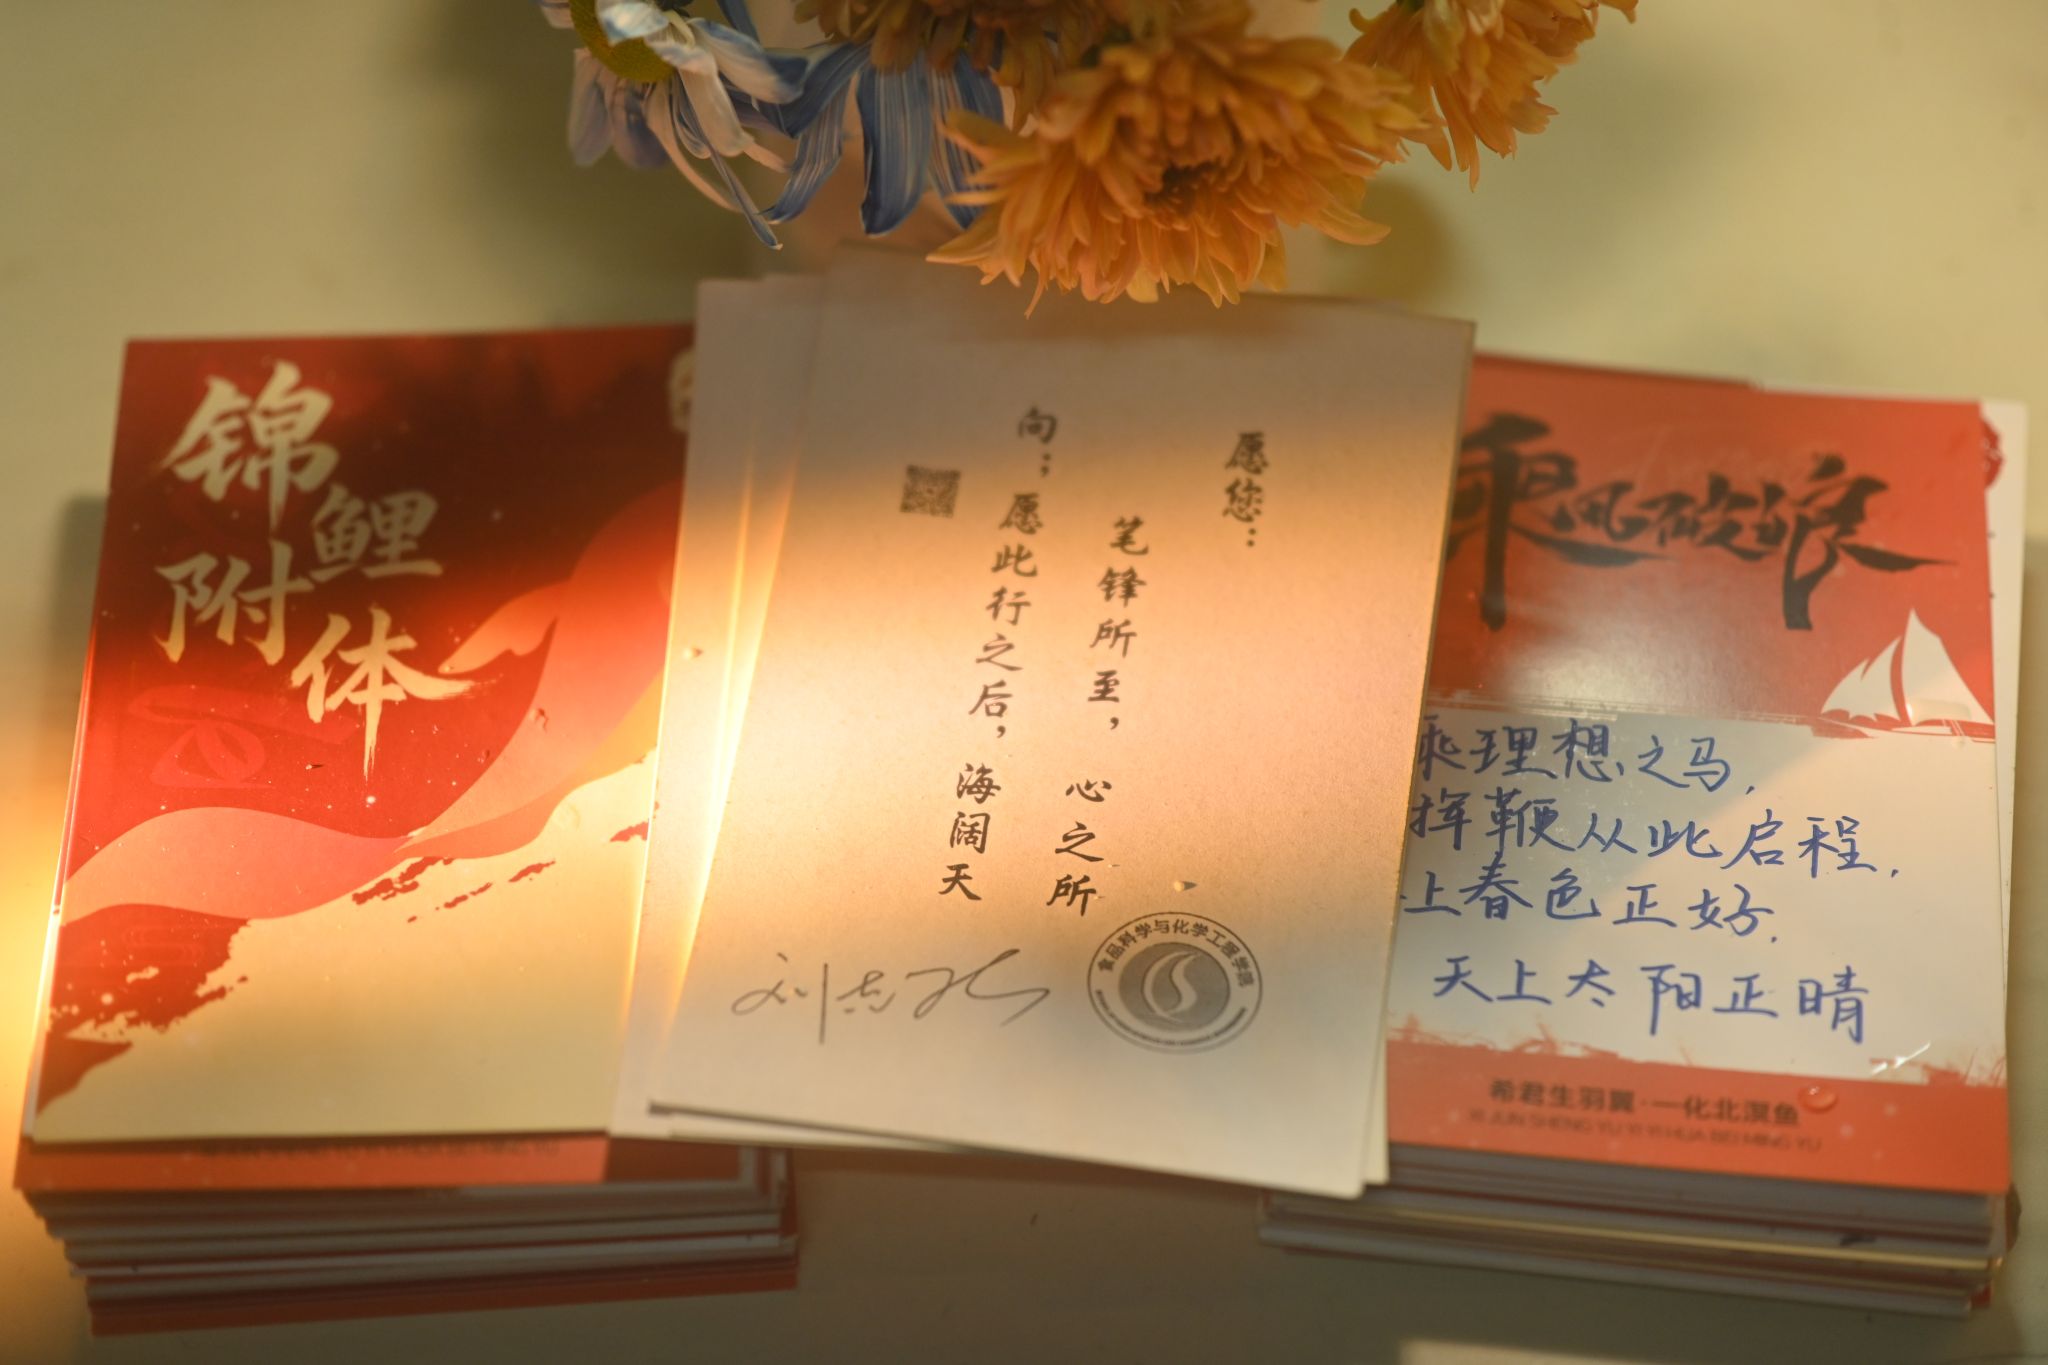 锦鲤
附体
愿您：
笔锋所至，心之所
向；愿此行之后，海阔天
刘志北
食品科学与化学工程学院
乘风破浪
乘理想之马，
挥鞭从此启程，
上春色正好，
天上太阳正晴
希君生羽翼·一化北溟鱼
XI JUN SHENG YU YI YI HUA BEI MING YU